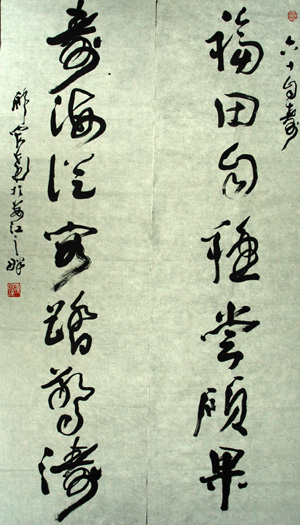 六十自壽
福田自種尝碩果
壽海從容踏驚濤
於婁江之畔